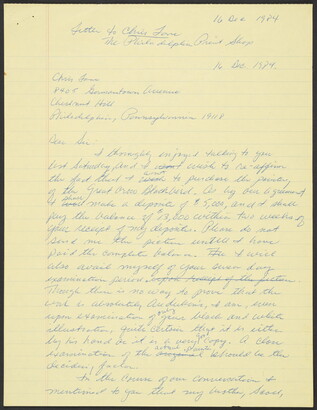 16 Dec. 1984
Letter to Chris Lane
The Philadelphia Print Shop
16 Dec. 1984.
Chris Lane
8405 Germantown Avenue
Chestnut Hill
Philadelphia, Pennsylvania 19118
Dear Sir:
I thoroughly enjoyed talking to you
last Saturday and I wish to re-affirm
the fact that I want to purchase the painting
of the Great Cross Blackbird. As by our agreement
I shall make a deposit of $5,000, and I shall
pay the balance of within two weeks of
your receipt of my deposit. Please do not
send me the picture until I have
paid the complete balance. For I will
also avail myself of your seven day
examination period upon receipt of the picture.
Though there is no way to prove that the
work is absolutely Audubon's, I am, even
upon examination of only your black and white
illustration, quite certain that it is either
by his hand or it is a very copy. A close
examination of the actual painting should be the
deciding factor.
In the course of our conversation I
mentioned to you that my brother,